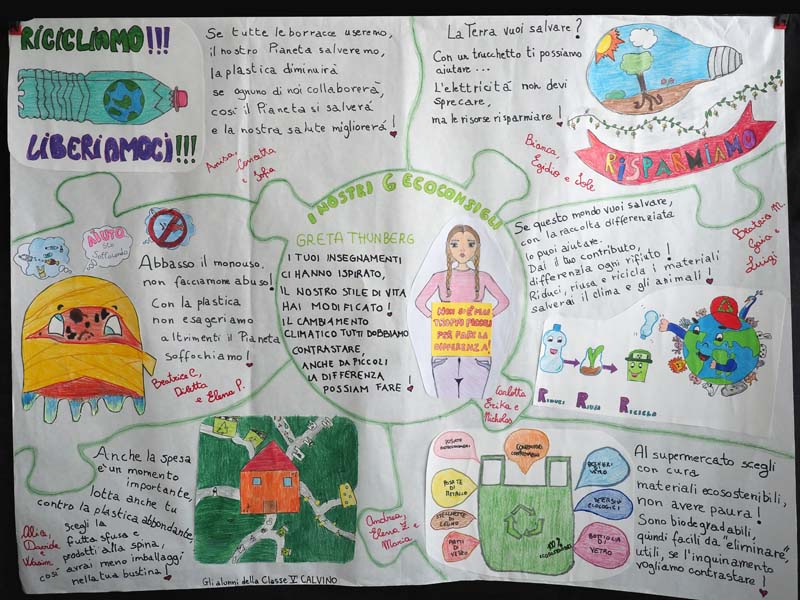 RICICLIAMO!!!
LIBERIAMOCI!!!
Se tutte le borracce useremo,
il nostro Pianeta salveremo,
la plastica diminuirà
se ognuno di noi collaborerà,
così il Pianeta si salverà
e la nostra salute migliorerà!
Anisa,
Concetta
e Sofia
La Terra vuoi salvare?
Con un trucchetto ti possiamo
aiutare...
L'elettricità non devi
sprecare,
ma le risorse risparmiare!
Bianca,
Egidio e Iole
RISPARMIAMO
I NOSTRI 6 ECOCONSIGLI
GRETA THUNBERG
I TUOI INSEGNAMENTI
CI HANNO ISPIRATO,
IL NOSTRO STILE DI VITA
HAI MODIFICATO!
IL CAMBIAMENTO
CLIMATICO TUTTI DOBBIAMO
CONTRASTARE,
ANCHE DA PICCOLI
LA DIFFERENZA
POSSIAM FARE!
NON SI È MAI
TROPPO PICCOLI
PER FARE LA
DIFFERENZA!
Carlotta
Erika e
Nicholas
AIUTO
Sto
Soffocando
Abbasso il monouso,
non facciamone abuso!
Con la plastica
non esageriamo
altrimenti il Pianeta
soffochiamo!
Beatrice C,
Diletta
e Elena P.
Se questo mondo vuoi salvare,
con la raccolta differenziata
lo puoi aiutare.
Dai il tuo contributo,
differenzia ogni rifiuto!
Riduci, riusa e ricicla i materiali
salverai il clima e gli animali!
Beatrice M.
Gaia e
Luigi
RIDUCI RIUSA RICICLA
Anche la spesa
è un momento
importante,
lotta anche tu
contro la plastica abbondante,
scegli la
frutta sfusa e
prodotti alla spina,
così avrai meno imballaggi
nella tua bustina!
Alia,
Davide
Wasim
Gli alunni della Classe V CALVINO
Andrea,
Elena Z. e
Maria
POSATE DI
METALLO
PIATTI DI
VETRO
BICCHIERI
VETRO
DETERSIVI
ECOLOGICI
BOTTIGLIA DI
VETRO
100%
Al supermercato scegli
con cura
materiali ecosostenibili,
non avere paura!
Sono biodegradabili,
quindi facili da "eliminare",
utili, se l'inquinamento
vogliamo contrastare!